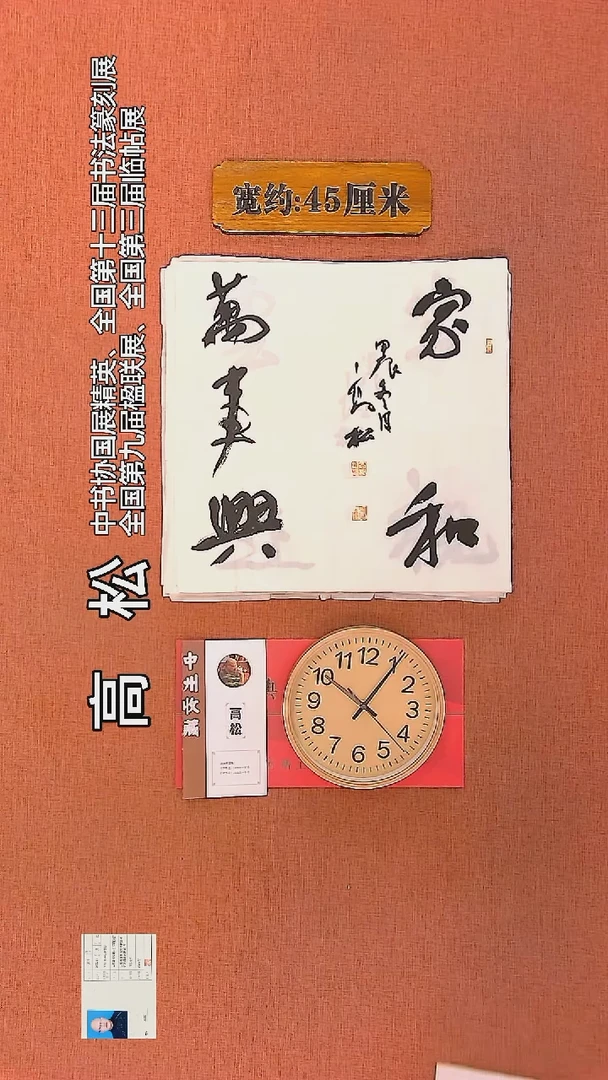 高松
中书协国展精英、全国第十三届书法篆刻展
全国第九届楹联展、全国第三届临帖展
宽约:45厘米
家和
萬事興
甲辰冬月
高松
高松
12
1
2
3
4
5
6
7
8
9
10
11